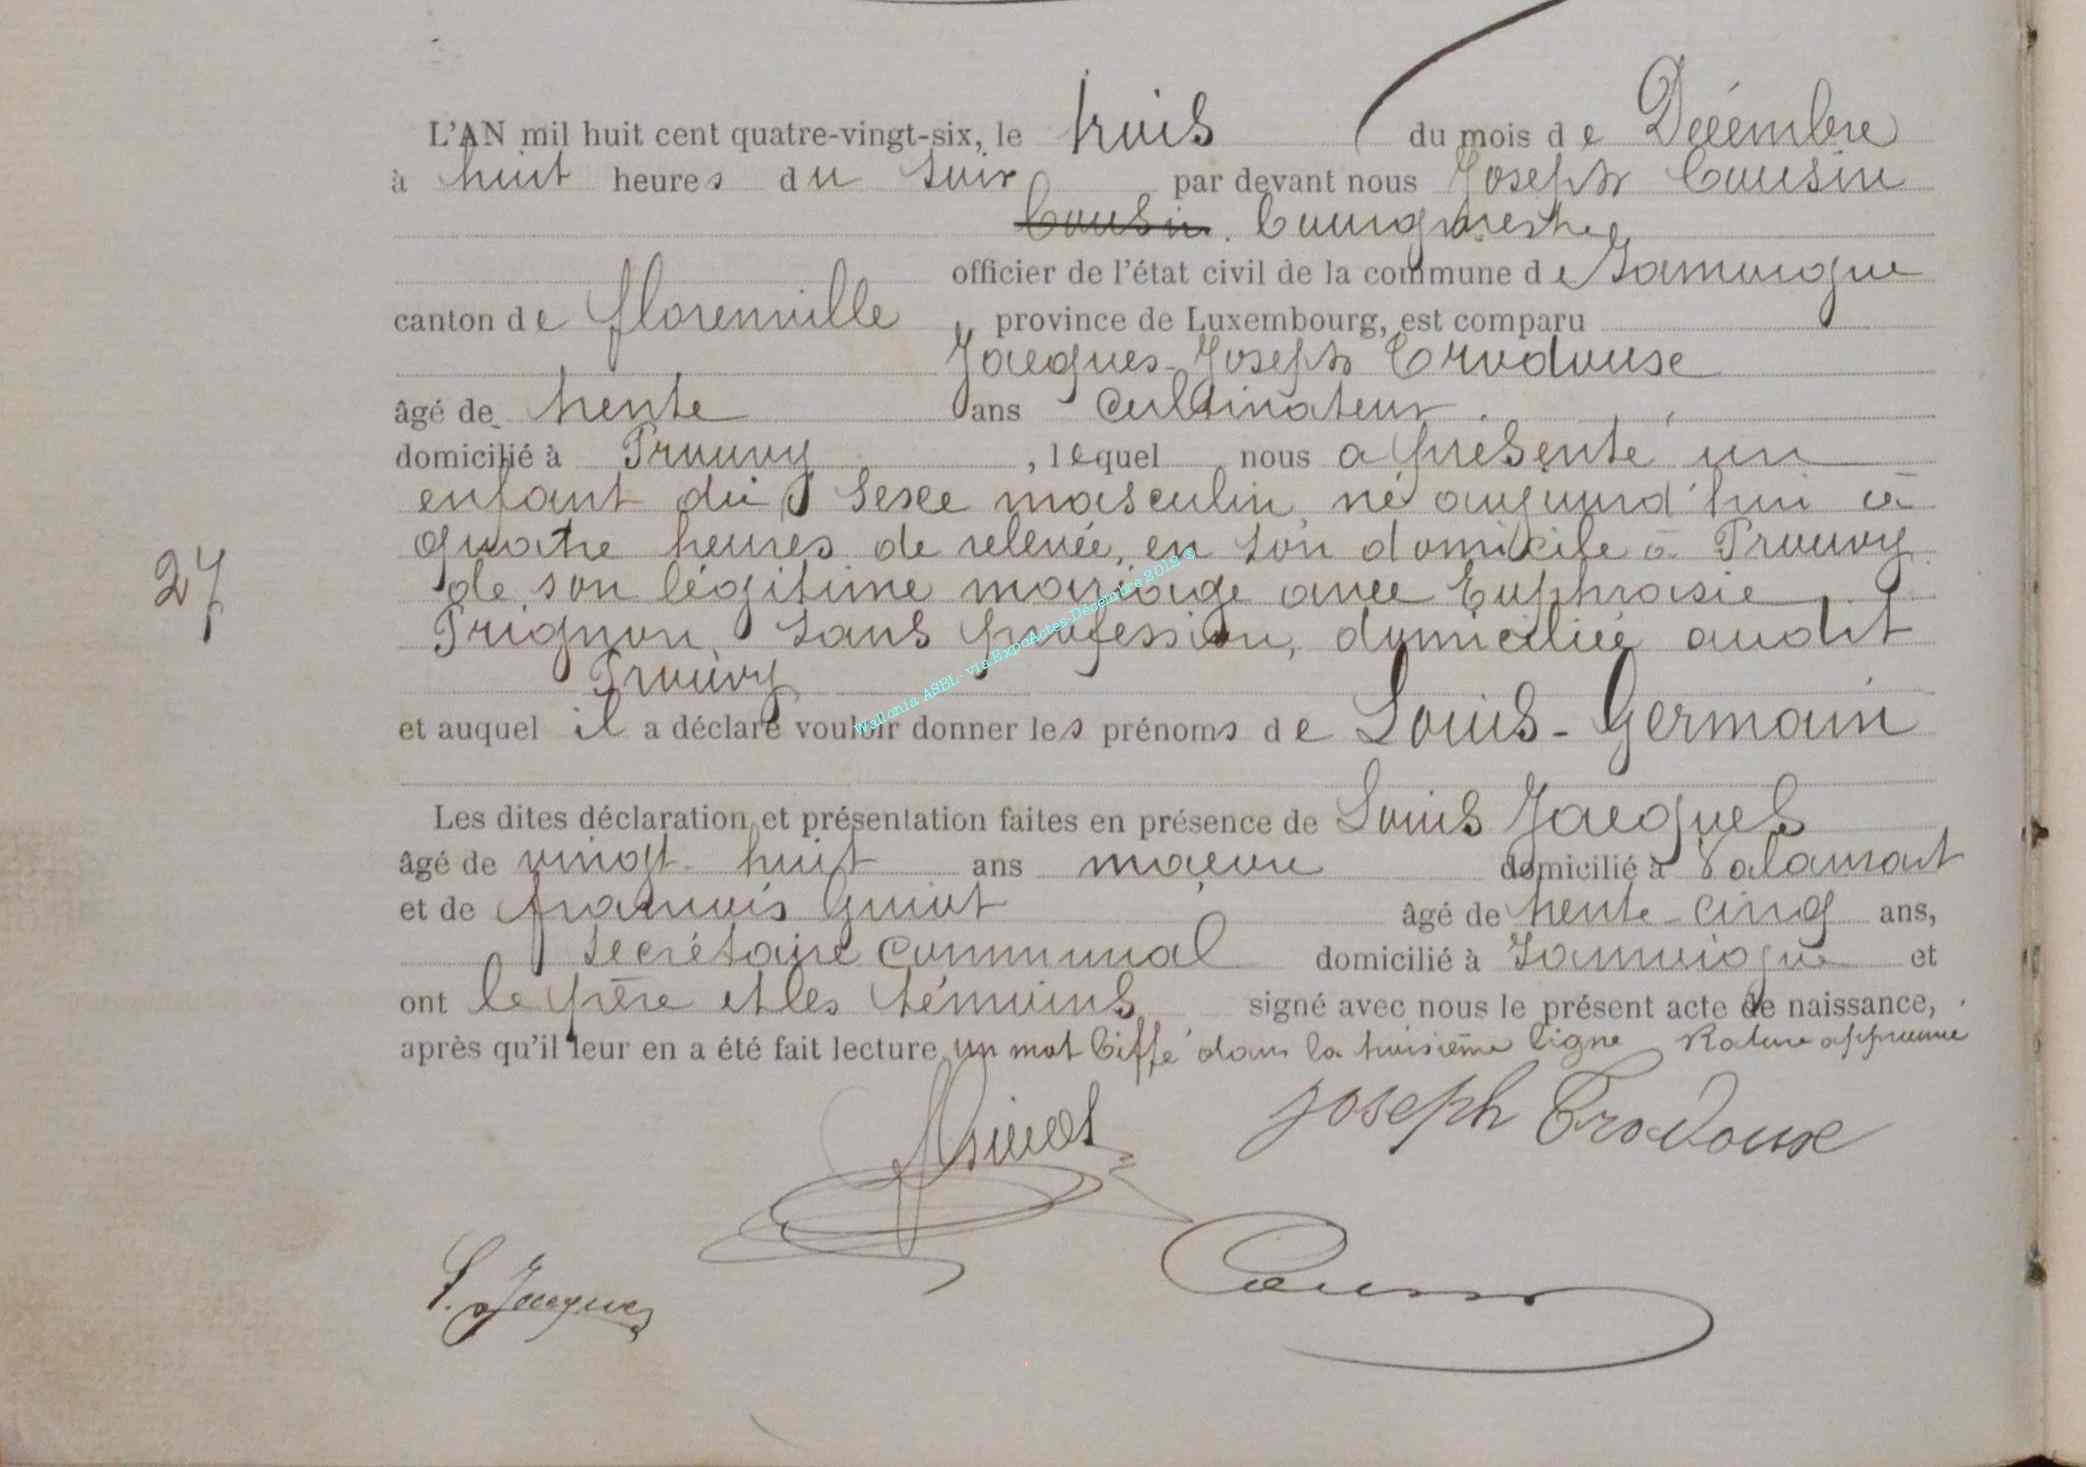 L'AN mil huit cent quatre-vingt-six, le trois du mois de Décembre
à huit heures du soir par devant nous Joseph Cousin
Cousin. Bourgmestre
officier de l'état civil de la commune de Jamoigne
canton de Florenville, province de Luxembourg, est comparu
Jacques-Joseph Crodouse
âgé de trente ans cultivateur.
domicilié à Prouvy, lequel nous a présenté un
enfant du sexe masculin, né aujourd'hui à
quatre heures de relevée, en son domicile à Prouvy
de son légitime mariage avec Euphrasie
Prignon, sans profession, domiciliée audit
27
Prouvy
et auquel il a déclaré vouloir donner les prénoms de Louis-Germain
Les dites déclaration et présentation faites en présence de Louis Jacques
âgé de vingt-huit ans maçon domicilié à Valansart
et de François Guiot âgé de trente-cinq ans,
secrétaire communal domicilié à Jamoigne et
ont le père et les témoins signé avec nous le présent acte de naissance,
après qu'il leur en a été fait lecture un mot biffé dans la troisième ligne Rature approuvée
Joseph Crodouse
L. Jacques
Wallonia ASBL - vis ExpoActes-Décembre 2012 ©